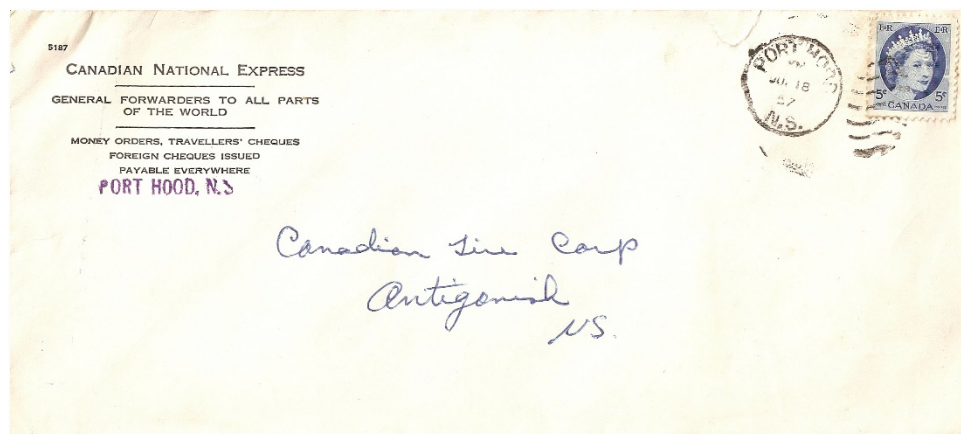 5187
CANADIAN NATIONAL EXPRESS
GENERAL FORWARDERS TO ALL PARTS
OF THE WORLD
MONEY ORDERS, TRAVELLERS' CHEQUES
FOREIGN CHEQUES ISSUED
PAYABLE EVERYWHERE
PORT HOOD, N.S
PORT HOOD
18
57
N.S.
E R E R
5¢ 5¢
CANADA
Canadian Tire Corp
Antigonish
NS.